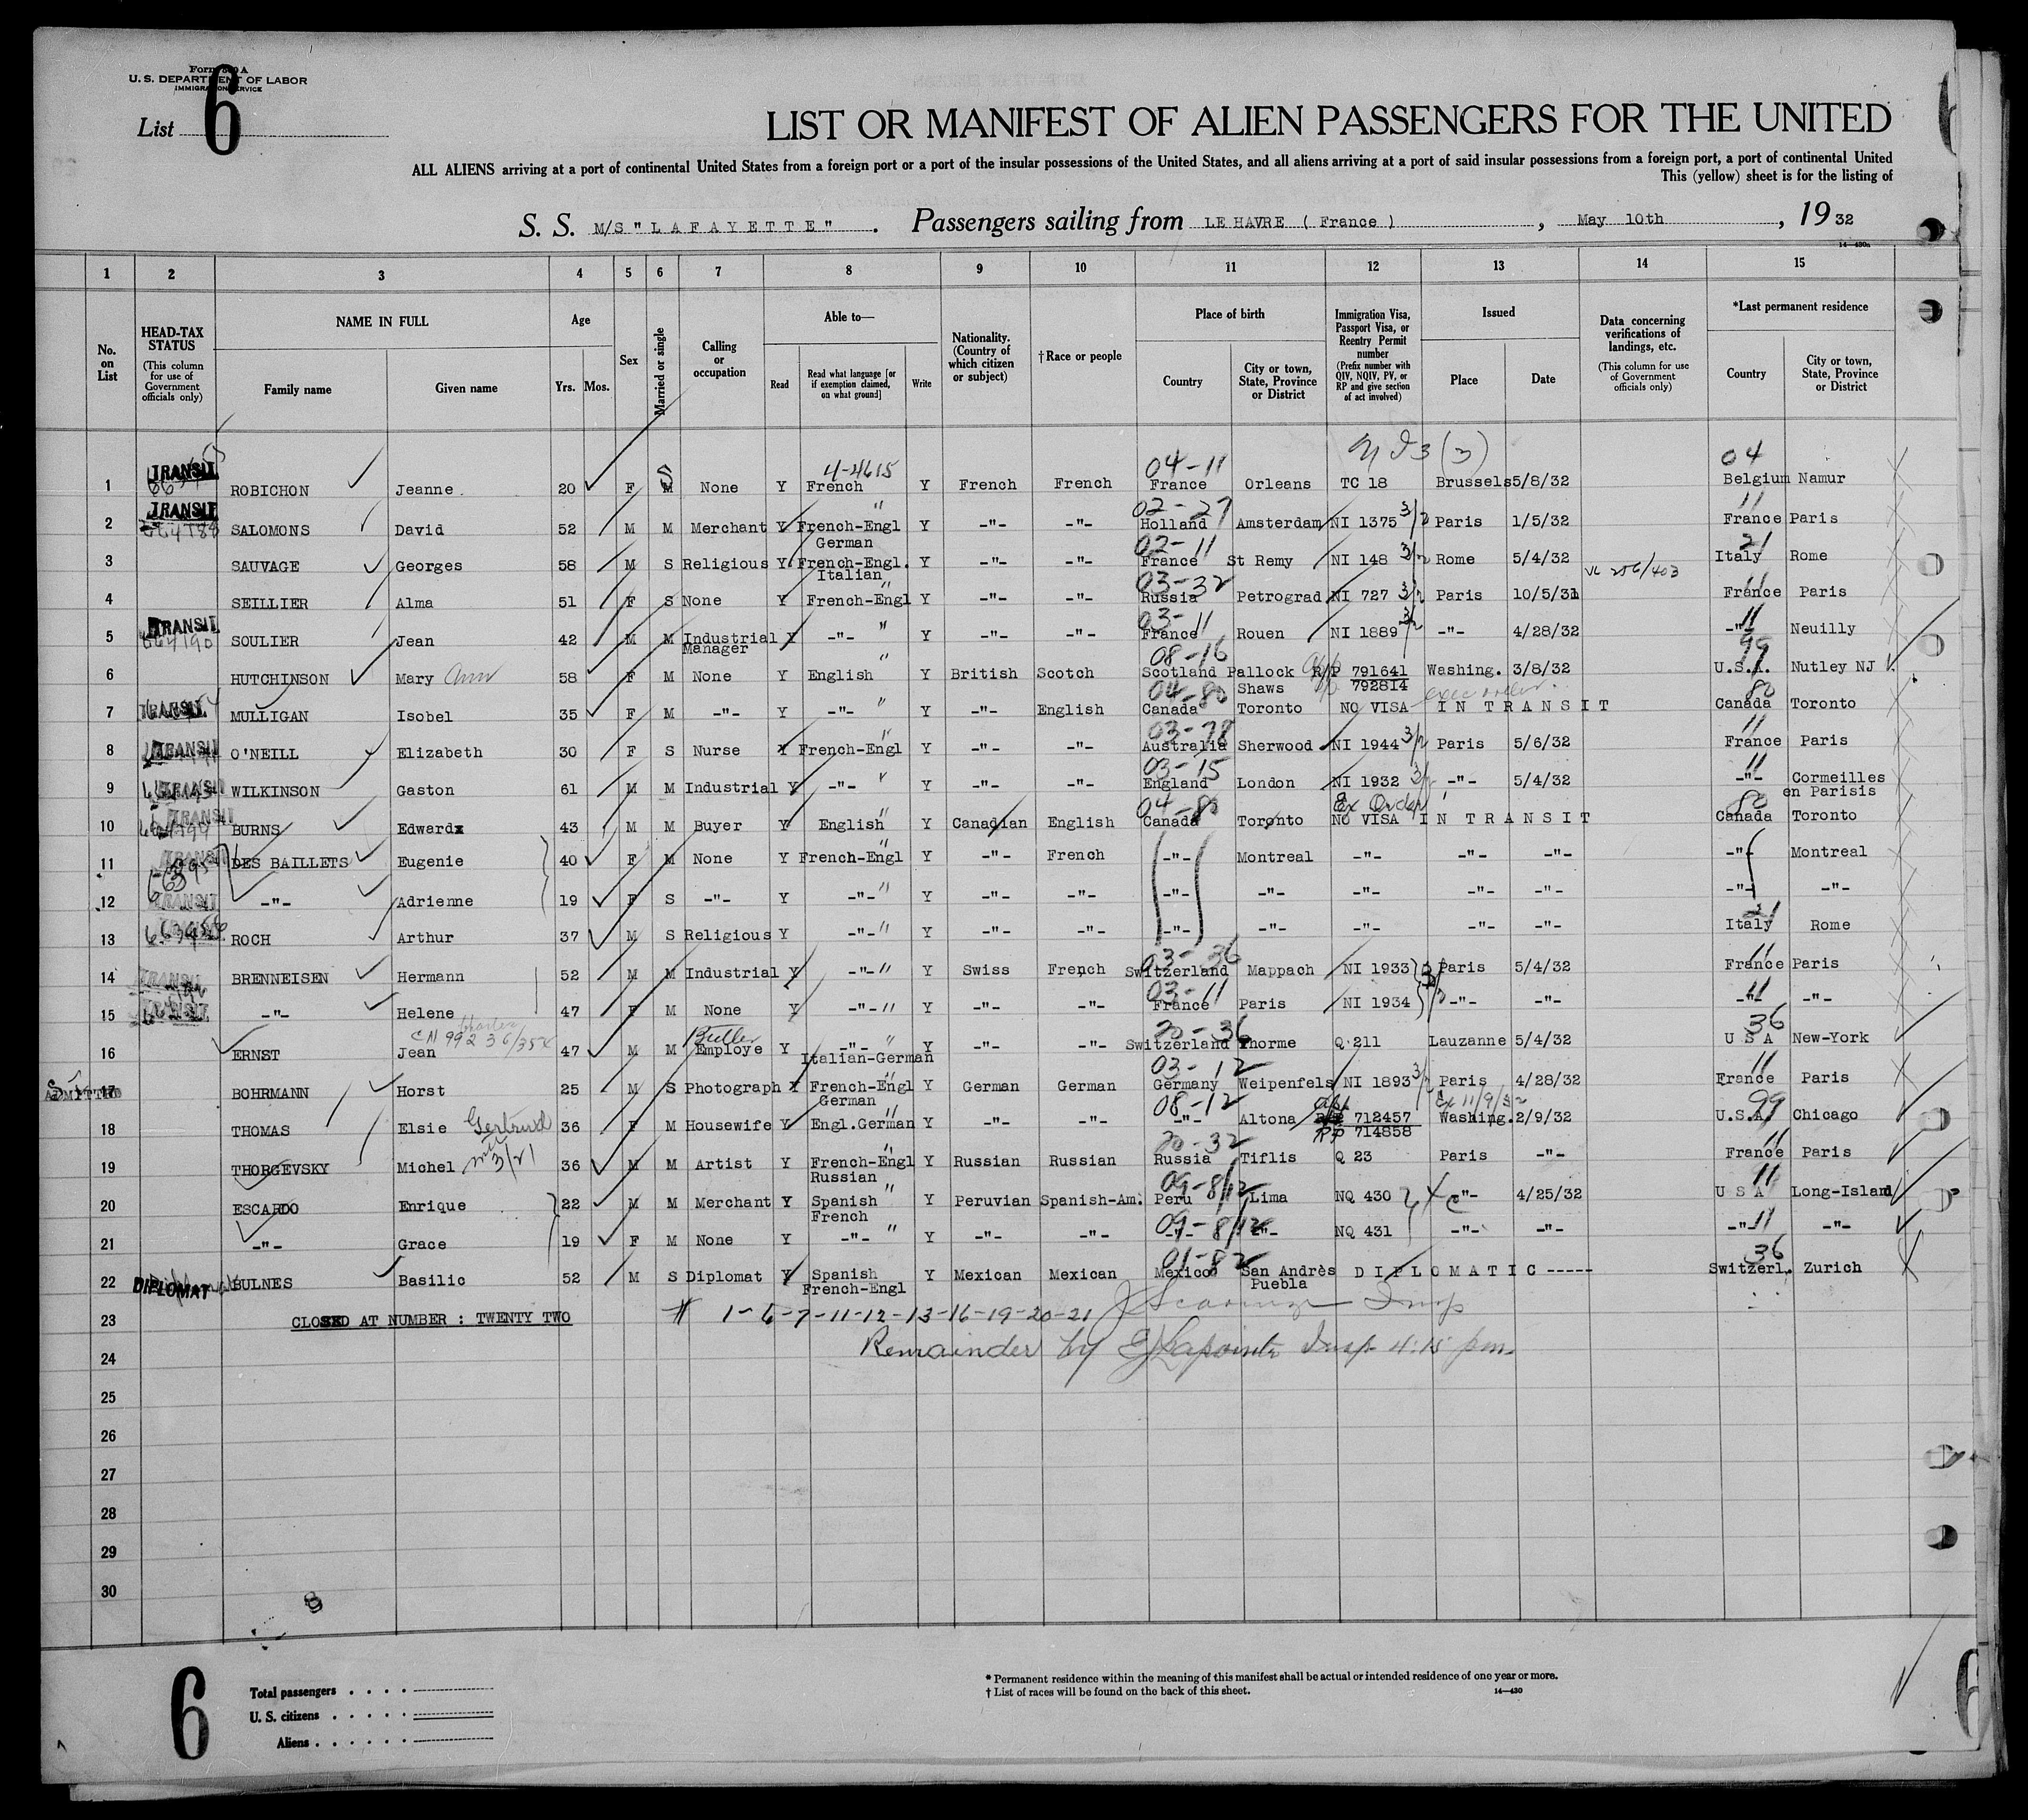 Form 500 A
U. S. DEPARTMENT OF LABOR
IMMIGRATION SERVICE
List 6
LIST OR MANIFEST OF ALIEN PASSENGERS FOR THE UNITED
ALL ALIENS arriving at a port of continental United States from a foreign port or a port of the insular possessions of the United States, and all aliens arriving at a port of said insular possessions from a foreign port, a port of continental United
This (yellow) sheet is for the listing of
S. S. M/S " L A F A Y E T T E " . Passengers sailing from LE HAVRE ( France ) , May 10th , 19 32
14—430a
1 2 3 4 5 6 7 8 9 10 11 12 13 14 15
No. on List
HEAD-TAX STATUS (This column for use of Government officials only)
NAME IN FULL Family name Given name
Age Yrs. Mos.
Sex
Married or single
Calling or occupation
Able to— Read Read what language [or if exemption claimed, on what ground] Write
Nationality. (Country of which citizen or subject)
†Race or people
Place of birth Country City or town, State, Province or District
Immigration Visa, Passport Visa, or Reentry Permit number (Prefix number with QIV, NQIV, PV, or RP and give section of act involved)
Issued Place Date
Data concerning verifications of landings, etc. (This column for use of Government officials only)
*Last permanent residence Country City or town, State, Province or District
4-4615 04-11 04
1 TRANSIT ROBICHON Jeanne. 20 F M S None Y French Y French French France Orleans TC 18 Brussels 5/8/32 Belgium Namur
02-27 11
2 TRANSIT SALOMONS David 52 M M Merchant Y French-Engl German Y -"- -"- Holland Amsterdam NI 1375 3/2 Paris 1/5/32 France Paris
02-11 21
3 SAUVAGE Georges 58 M S Religious Y French-Engl. Italian Y -"- -"- France St Remy NI 148 3/2 Rome 5/4/32 Italy Rome
03-32 256/403 11
4 SEILLIER Alma 51 F S None Y French-Engl Y -"- -"- Russia Petrograd NI 727 3/2 Paris 10/5/31 France Paris
03-11 11
5 TRANSIT 664190 SOULIER Jean 42 M M Industrial Manager Y -"- Y -"- -"- France Rouen NI 1889 3/2 -"- 4/28/32 -"- Neuilly
08-16 99
6 HUTCHINSON Mary Ann 58 F M None Y English Y British Scotch Scotland Pallock Shaws R/P 791641 792814 Washing. 3/8/32 U.S.A. Nutley NJ
04-80 80
7 TRANSIT MULLIGAN Isobel 35 F M -"- Y -"- Y -"- English Canada Toronto NO VISA I N T R A N S I T Canada Toronto
03-78 11
8 TRANSIT O'NEILL Elizabeth 30 F S Nurse Y French-Engl Y -"- -"- Australia Sherwood NI 1944 3/2 Paris 5/6/32 France Paris
03-15 11
9 TRANSIT WILKINSON Gaston 61 M M Industrial Y -"- Y -"- -"- England London NI 1932 3/2 -"- 5/4/32 -"- Cormeilles en Parisis
04-80 Ex Order 80
10 TRANSIT BURNS Edwardx 43 M M Buyer Y English Y Canadian English Canada Toronto NO VISA I N T R A N S I T Canada Toronto
11 TRANSIT DES BAILLETS Eugenie 40 F M None Y French-Engl Y -"- French -"- Montreal -"- -"- -"- -"- Montreal
12 TRANSIT -"- Adrienne 19 F S -"- Y -"- Y -"- -"- -"- -"- -"- -"- -"- -"- -"-
21
13 ROCH Arthur 37 M S Religious Y -"- Y -"- -"- -"- -"- -"- -"- -"- Italy Rome
03-36 11
14 TRANSIT BRENNEISEN Hermann 52 M M Industrial Y -"- Y Swiss French Switzerland Mappach NI 1933 Paris 5/4/32 France Paris
03-11 11
15 TRANSIT -"- Helene 47 F M None Y -"- Y -"- -"- France Paris NI 1934 -"- -"- -"- -"-
20-36 36
16 ERNST Jean 47 M M Employe Butler Y -"- Italian-German Y -"- -"- Switzerland Thorme Q 211 Lauzanne 5/4/32 U S A New-York
03-12 11
17 ADMITTED BOHRMANN Horst 25 M S Photograph Y French-Engl German Y German German Germany Weipenfels NI 1893 3/2 Paris 4/28/32 France Paris
08-12 99
18 THOMAS Elsie Gertrud 36 F M Housewife Y Engl.German Y -"- -"- -"- Altona 712457 RP 714858 Washing. 2/9/32 U.S.A. Chicago
20-32 11
19 THORGEVSKY Michel 36 M M Artist Y French-Engl Russian Y Russian Russian Russia Tiflis Q 23 Paris -"- France Paris
09-8/12 11
20 ESCARDO Enrique 22 M M Merchant Y Spanish French Y Peruvian Spanish-Am. Peru Lima NQ 430 -"- 4/25/32 U S A Long-Island
09-8/12 11
21 -"- Grace 19 F M None Y -"- Y -"- -"- -"- -"- NQ 431 -"- -"- -"- -"-
01-82 36
22 DIPLOMAT BULNES Basilic 52 M S Diplomat Y Spanish French-Engl Y Mexican Mexican Mexico San Andrès Puebla D I P L O M A T I C ----- Switzerl. Zurich
23 CLOSED AT NUMBER : TWENTY TWO # 1-6-7-11-12-13-16-19-20-21 Insp
24 Remainder by EJ Lapointe Insp 4:15 pm.
25
26
27
28
29
30
8
6
Total passengers
U. S. citizens
Aliens
* Permanent residence within the meaning of this manifest shall be actual or intended residence of one year or more.
† List of races will be found on the back of this sheet.
14—430